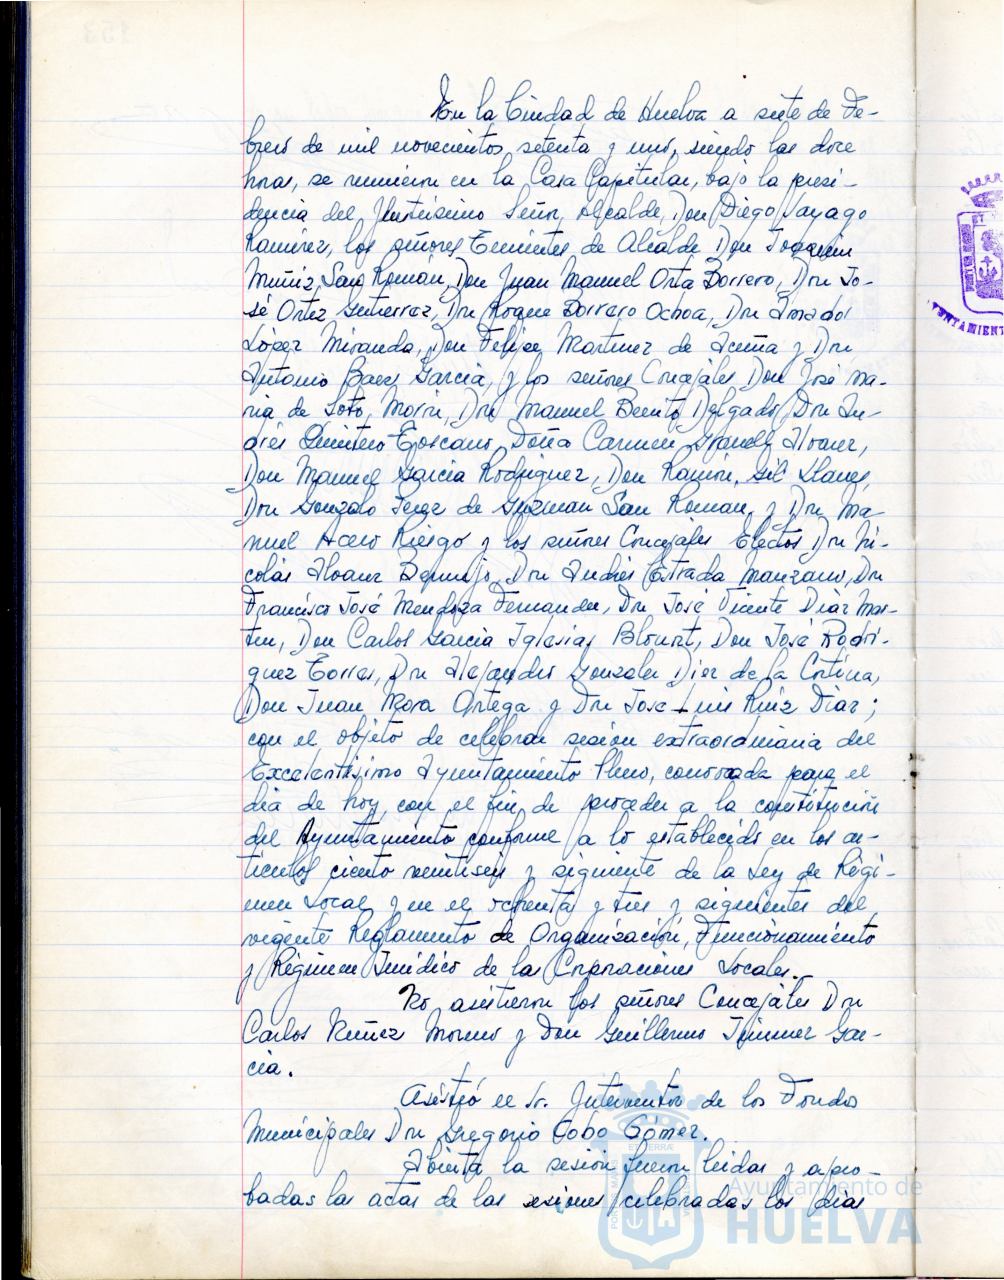 En la Ciudad de Huelva a siete de Fe-
brero de mil novecientos setenta y uno, siendo las doce
horas, se reunieron en la Casa Capitular, bajo la presi-
dencia del Ilustrísimo Señor Alcalde, Don Diego Sayago
Ramírez, los señores Tenientes de Alcalde Don Joaquin
Muñiz San Román, Don Juan Manuel Orta Borrero, Don Jo-
sé Ortiz Gutierrez, Don Roque Borrero Ochoa, Don Amador
López Miranda, Don Felipe Martinez de Acuña y Don
Antonio Baez Garcia, y los señores Concejales Don José Ma-
ria de Soto, Morón, Don Manuel Benito Delgado, Don An-
drés Quintero Toscano, Doña Carmen Granell Alvarez,
Don Manuel Garcia Rodriguez, Don Ramón Gil Llanes,
Don Gonzalo Perez de Guzman San Roman, y Don Ma-
nuel Acero Riesgo y los señores Concejales Electos Don Ni-
colás Alvarez Bermejo, Don Andrés Estrada Manzano, Don
Francisco José Mendoza Fernandez, Don José Vicente Diaz Mar-
tin, Don Carlos Garcia Iglesias Blount, Don José Rodri-
guez Torres, Don Alejandro Gonzalez Diez de la Cortina,
Don Juan Mora Ortega y Don Jose Luis Ruiz Diaz;
con el objeto de celebrar sesión extraordinaria del
Excelentísimo Ayuntamiento Pleno, convocada para el
dia de hoy, con el fin de proceder a la constitución
del Ayuntamiento conforme a lo establecido en los ar-
ticulos ciento veintiseis y siguiente de la Ley de Régi-
men Local y en el ochenta y tres y siguientes del
vigente Reglamento de Organización, Funcionamiento
y Régimen Jurídico de las Corporaciones Locales.-
No asistieron los señores Concejales Don
Carlos Nuñez Moreno y Don Guillermo Garcia.
Asistió el Sr. Interventor de los Fondos
Municipales Don Gregorio Cobo Gomez.
Abierta la sesión fueron leidas y apro-
badas las actas de las sesiones celebradas los dias
Ayuntamiento de
HUELVA